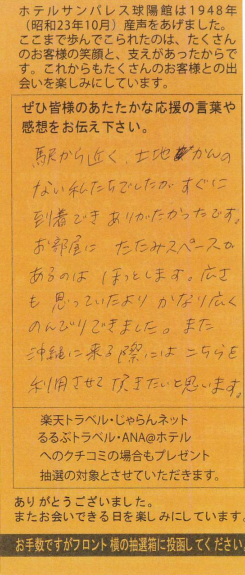 ホテルサンパレス球陽館は1948年
（昭和23年10月）産声をあげました。
ここまで歩んでこられたのは、たくさん
のお客様の笑顔と、支えがあったからで
す。これからもたくさんのお客様との出
会いを楽しみにしています。
ぜひ皆様のあたたかな応援の言葉や
感想をお伝え下さい。
駅から近く、土地かんの
ない私たちでしたがすぐに
到着でき ありがたかったです。
お部屋に たたみスペースが
あるのは ほっとします。広さ
も 思っていたより かなり広く
のんびりできました。また
沖縄に来る際には こちらを
利用させて頂きたいと思います。
楽天トラベル・じゃらんネット
るるぶトラベル・ANA@ホテル
へのクチコミの場合もプレゼント
抽選の対象とさせていただきます。
ありがとうございました。
またお会いできる日を楽しみにしています。
お手数ですがフロント横の抽選箱に投函してください